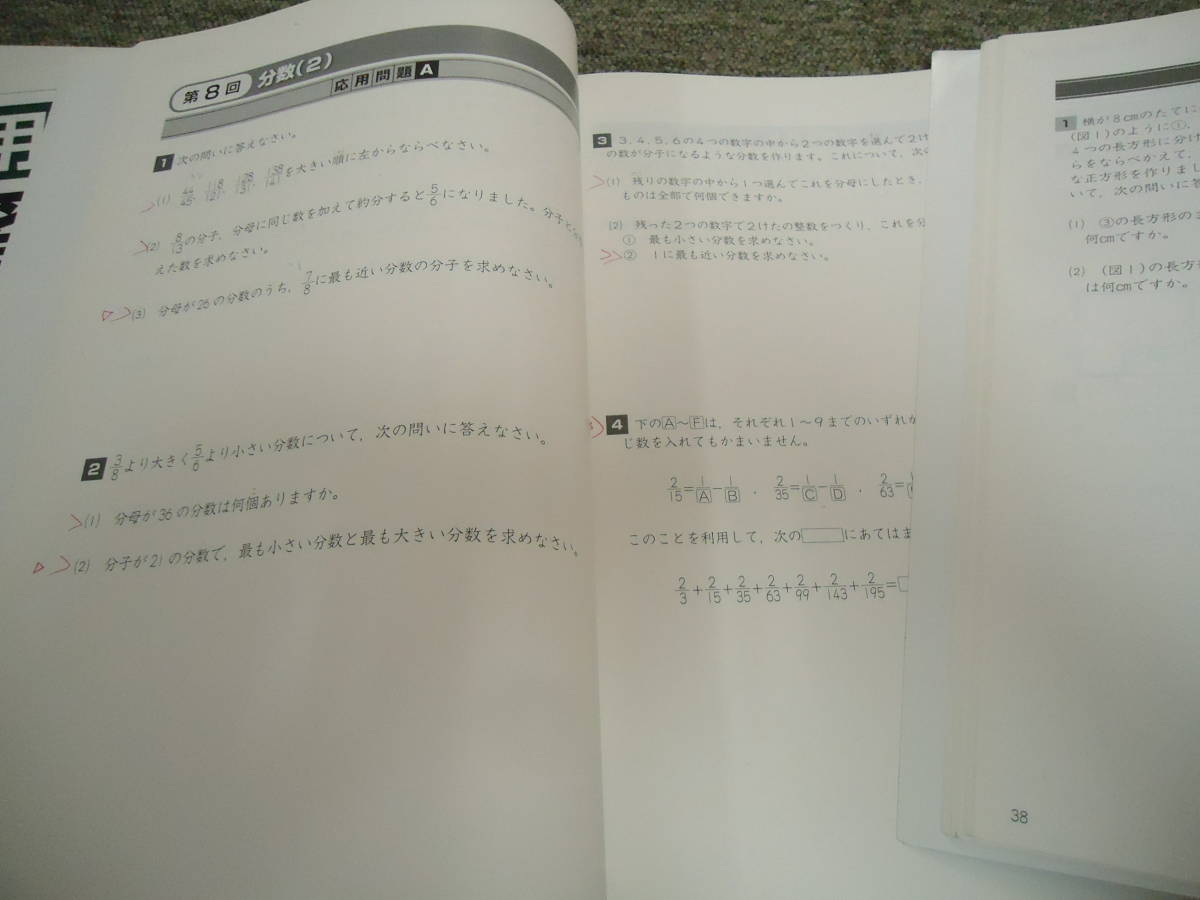 第8回 分数(2)
応用問題A
1 次の問いに答えなさい。
(1) 44/45, 118/121, 128/131, 138/141を大きい順に左からならべなさい。
(2) 8/13の分子,分母に同じ数を加えて約分すると5/6になりました。分子と
えた数を求めなさい。
(3) 分母が26の分数のうち,7/8に最も近い分数の分子を求めなさい。
2 3/8より大きく5/6より小さい分数について,次の問いに答えなさい。
(1) 分母が36の分数は何個ありますか。
(2) 分子が21の分数で,最も小さい分数と最も大きい分数を求めなさい。
3 3,4,5,6の4つの数字の中から2つの数字を選んで2け
の数が分子になるような分数を作ります。これについて,次
(1) 残りの数字の中から1つ選んでこれを分母にしたとき,
ものは全部で何個できますか。
(2) 残った2つの数字で2けたの整数をつくり,これを分
① 最も小さい分数を求めなさい。
② 1に最も近い分数を求めなさい。
4 下のA〜Fは,それぞれ1〜9までのいずれか
じ数を入れてもかまいません。
2/15=1/A−1/B , 2/35=1/C−1/D , 2/63=
このことを利用して,次の□にあてはま
2/3+2/15+2/35+2/63+2/99+2/143+2/195=
1 横が8cmのたてに
(図1)のように①,
4つの長方形に分け
らをならべかえて,
な正方形を作りまし
いて,次の問いに答
(1) ③の長方形のま
何cmですか。
(2) (図1)の長方形
は何cmですか。
38